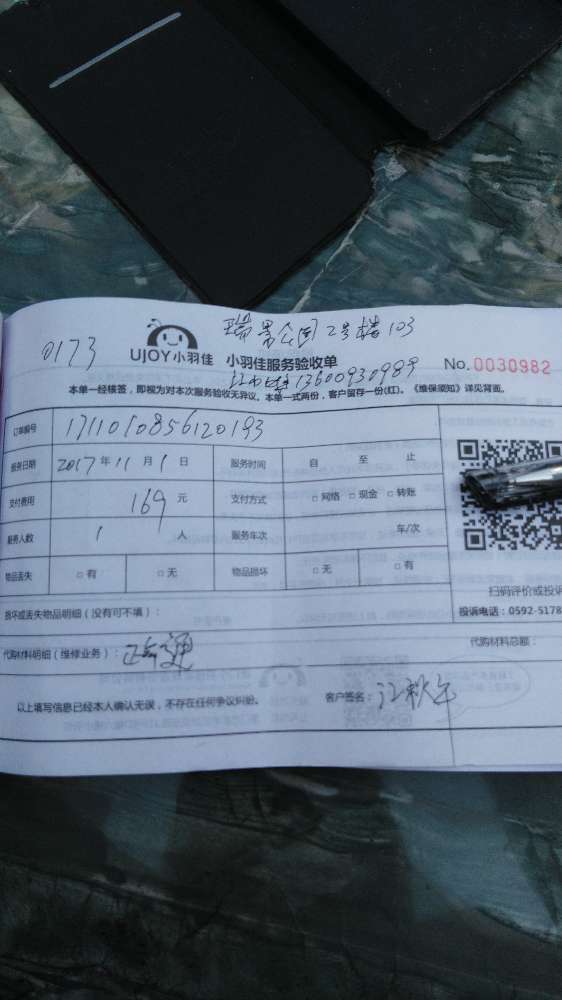 瑞景公园2号楼103
0173
UJOY小羽佳 小羽佳服务验收单 No.0030982
13600930989
本单一经核签，即视为对本次服务验收无异议。本单一式两份，客户留存一份(红)。《维保须知》详见背面。
订单编号 1711010856120193
服务日期 2017年11月1日 服务时间 自 至 止
支付费用 169元 支付方式 □网络 □现金 □转账
服务人数 1人 服务车次 车/次
物品丢失 □有 □无 物品损坏 □无 □有
扫码评价或投诉
损坏或丢失物品明细（没有可不填）： 投诉电话：0592-5178
代购材料明细（维修业务）： 代购材料总额：
以上填写信息已经本人确认无误，不存在任何争议纠纷。 客户签名：江秋午